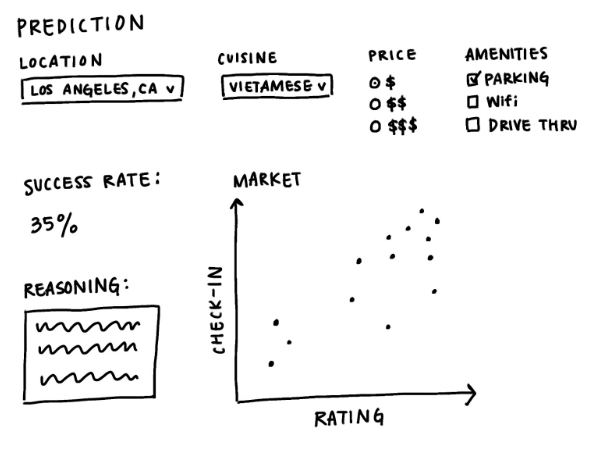 PREDICTION
LOCATION
LOS ANGELES, CA v
CUISINE
VIETAMESE v
PRICE
$
$$
$$$
AMENITIES
PARKING
Wifi
DRIVE THRU
SUCCESS RATE:
35%
REASONING:
MARKET
CHECK-IN
RATING